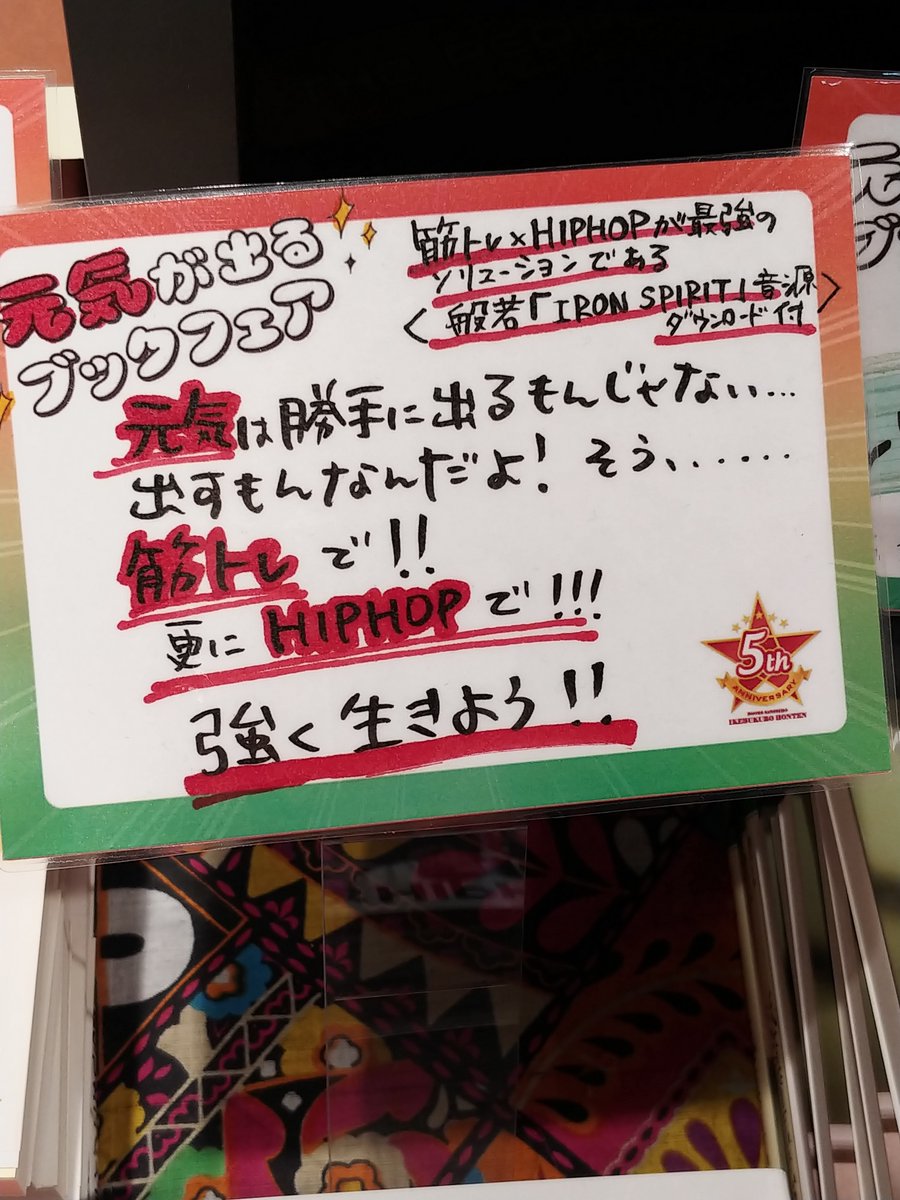 元気が出る
ブックフェア
筋トレ×HIPHOPが最強の
ソリューションである
<般若「IRON SPIRIT」音源
ダウンロード付>
元気は勝手に出るもんじゃない…
出すもんなんだよ！そう、……
筋トレで!!
更にHIPHOPで!!!
強く生きよう!!
5th
ANNIVERSARY
IKEBUKURO HONTEN
元
ブ